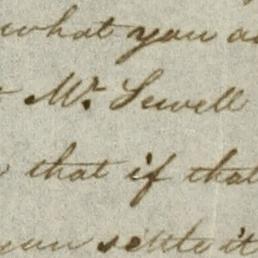 what you
Mr. Sewell
that if that
settle it